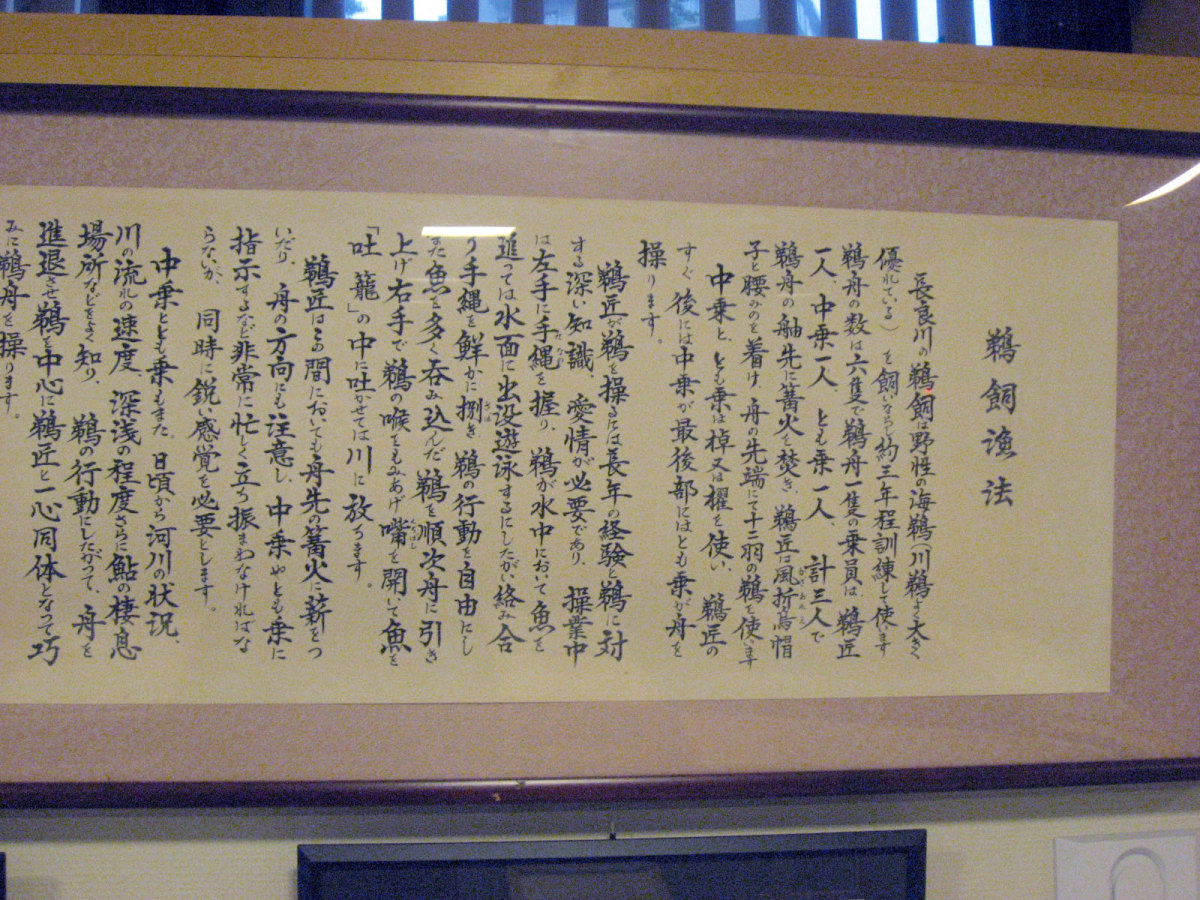 鵜飼漁法
長良川の鵜飼は野性の海鵜（川鵜より大きく
優れている）を飼いならし約三年程訓練して使います
鵜舟の数は六隻で鵜舟一隻の乗員は、鵜匠
一人、中乗一人、とも乗一人、計三人で
鵜舟の舳先に篝火を焚き、鵜匠は風折烏帽
子と腰みのを着け、舟の先端にて十二羽の鵜を使います
中乗と、とも乗は棹又は櫂を使い、鵜匠の
すぐ後には中乗が最後部にはとも乗が舟を
操ります。
鵜匠が鵜を操るには長年の経験と鵜に対
する深い知識、愛情が必要であり、操業中
は左手に手縄を握り、鵜が水中において魚を
追っては水面に出没遊泳するにしたがい絡み合
り手縄を鮮かに捌き、鵜の行動を自由にし
また魚を多く呑み込んだ鵜を順次舟に引き
上げ右手で鵜の喉をもみあげ嘴を開いて魚を
「吐籠」の中に吐かせては川に放ちます。
鵜匠はこの間においても舟先の篝火に薪をつ
いだり、舟の方向にも注意し、中乗やとも乗に
指示するなど非常に忙しく立ち振まわなければな
らないが、同時に鋭い感覚を必要とします。
中乗ととも乗もまた。日頃から河川の状況、
川の流れの速度、深浅の程度さらに鮎の棲息
場所などをよく知り、鵜の行動にしたがって、舟を
進退させ鵜を中心に鵜匠と一心同体となって巧
みに鵜舟を操ります。